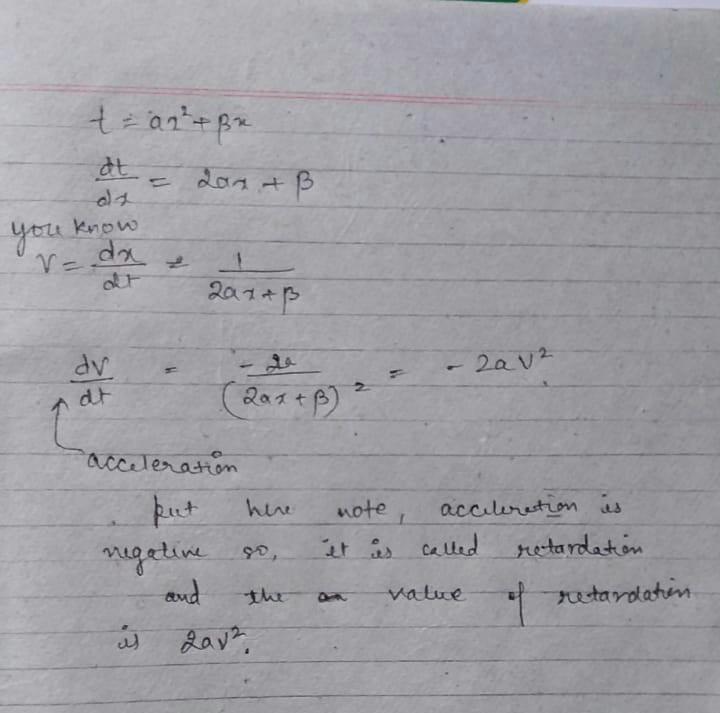 t = ax² + βx
dt/dx = 2ax + β
you know
v = dx/dt = 1/(2ax + β)
dv/dt = -2a/(2ax + β)² = -2av².
acceleration
. But here note, acceleration is
negative so, it is called retardation
and the value of retardation
is 2av².